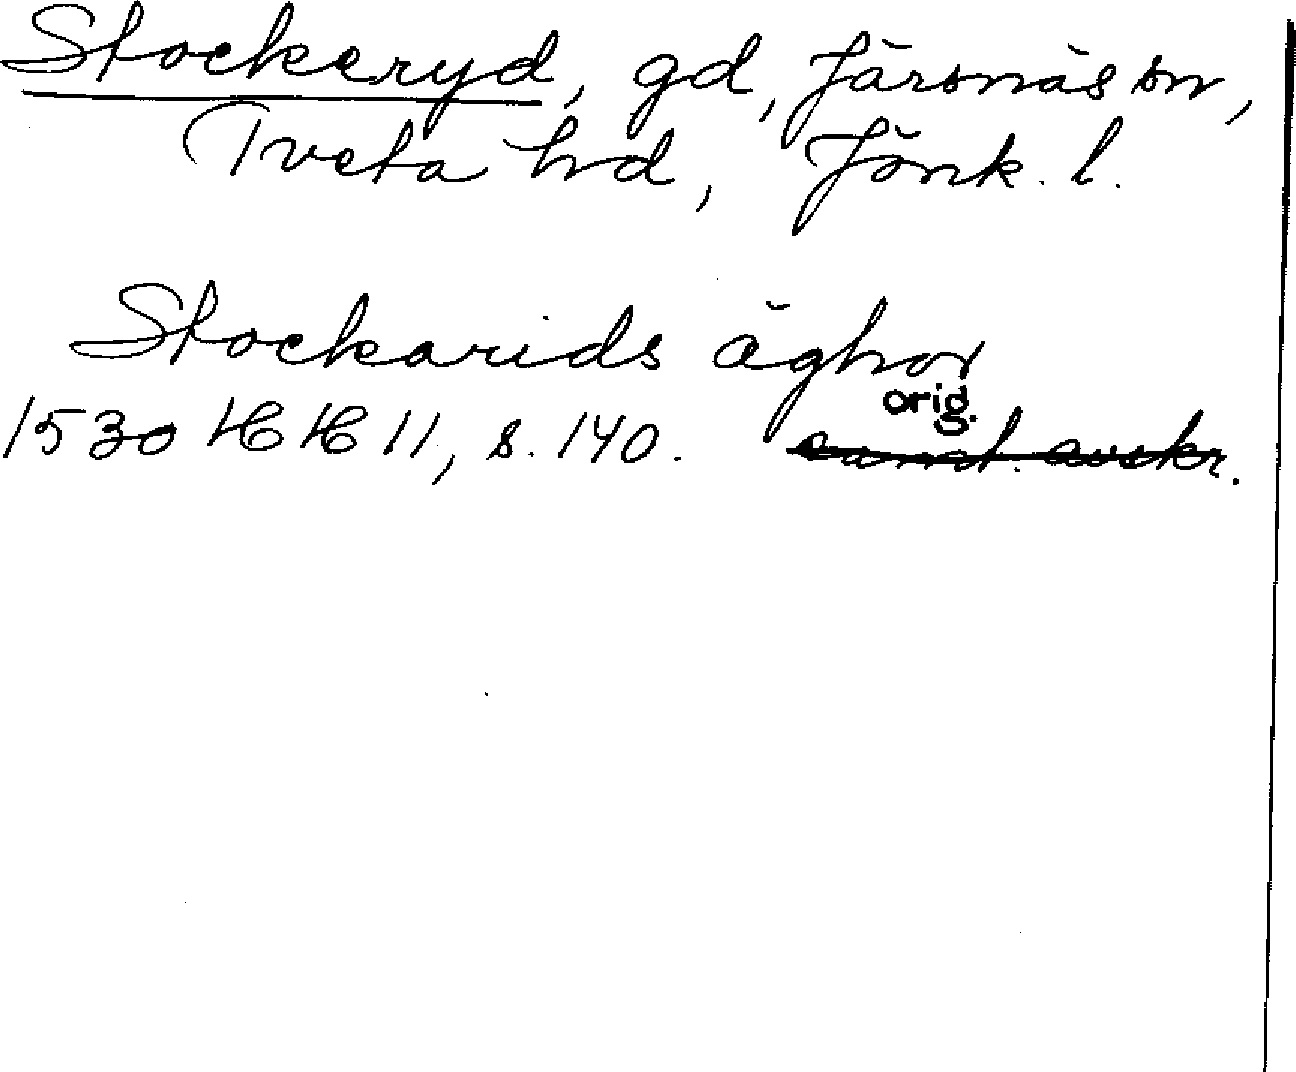 Stockeryd, gd, Järsnäs sn,
Tveta hd, Jönk. l.
Stockarids äghor
orig.
1530 HH 11, s. 140. samt. avskr.